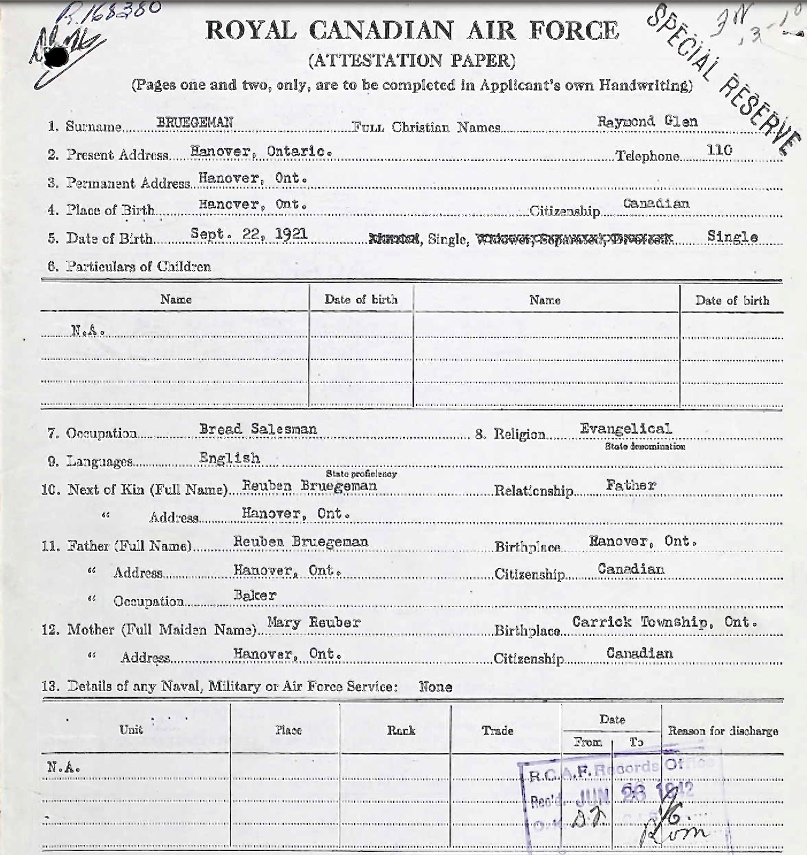 R.168380
ROYAL CANADIAN AIR FORCE
(ATTESTATION PAPER)
(Pages one and two, only, are to be completed in Applicant's own Handwriting)
SPECIAL RESERVE
1. Surname BRUEGEMAN FULL Christian Names Raymond Glen
2. Present Address Hanover, Ontario. Telephone 110
3. Permanent Address Hanover, Ont.
4. Place of Birth Hanover, Ont. Citizenship Canadian
5. Date of Birth Sept. 22, 1921 Single, Single
6. Particulars of Children
Name Date of birth Name Date of birth
N.A.
7. Occupation Bread Salesman 8. Religion Evangelical
State denomination
9. Languages English
State proficiency
10. Next of Kin (Full Name) Reuben Bruegeman Relationship Father
" Address Hanover, Ont.
11. Father (Full Name) Reuben Bruegeman Birthplace Hanover, Ont.
" Address Hanover, Ont. Citizenship Canadian
" Occupation Baker
12. Mother (Full Maiden Name) Mary Reuber Birthplace Carrick Township, Ont.
" Address Hanover, Ont. Citizenship Canadian
13. Details of any Naval, Military or Air Force Service: None
Unit Place Rank Trade Date Reason for discharge
From To
N.A.
R.C.A.F. Records Office
Rec'd JUN 26 1942